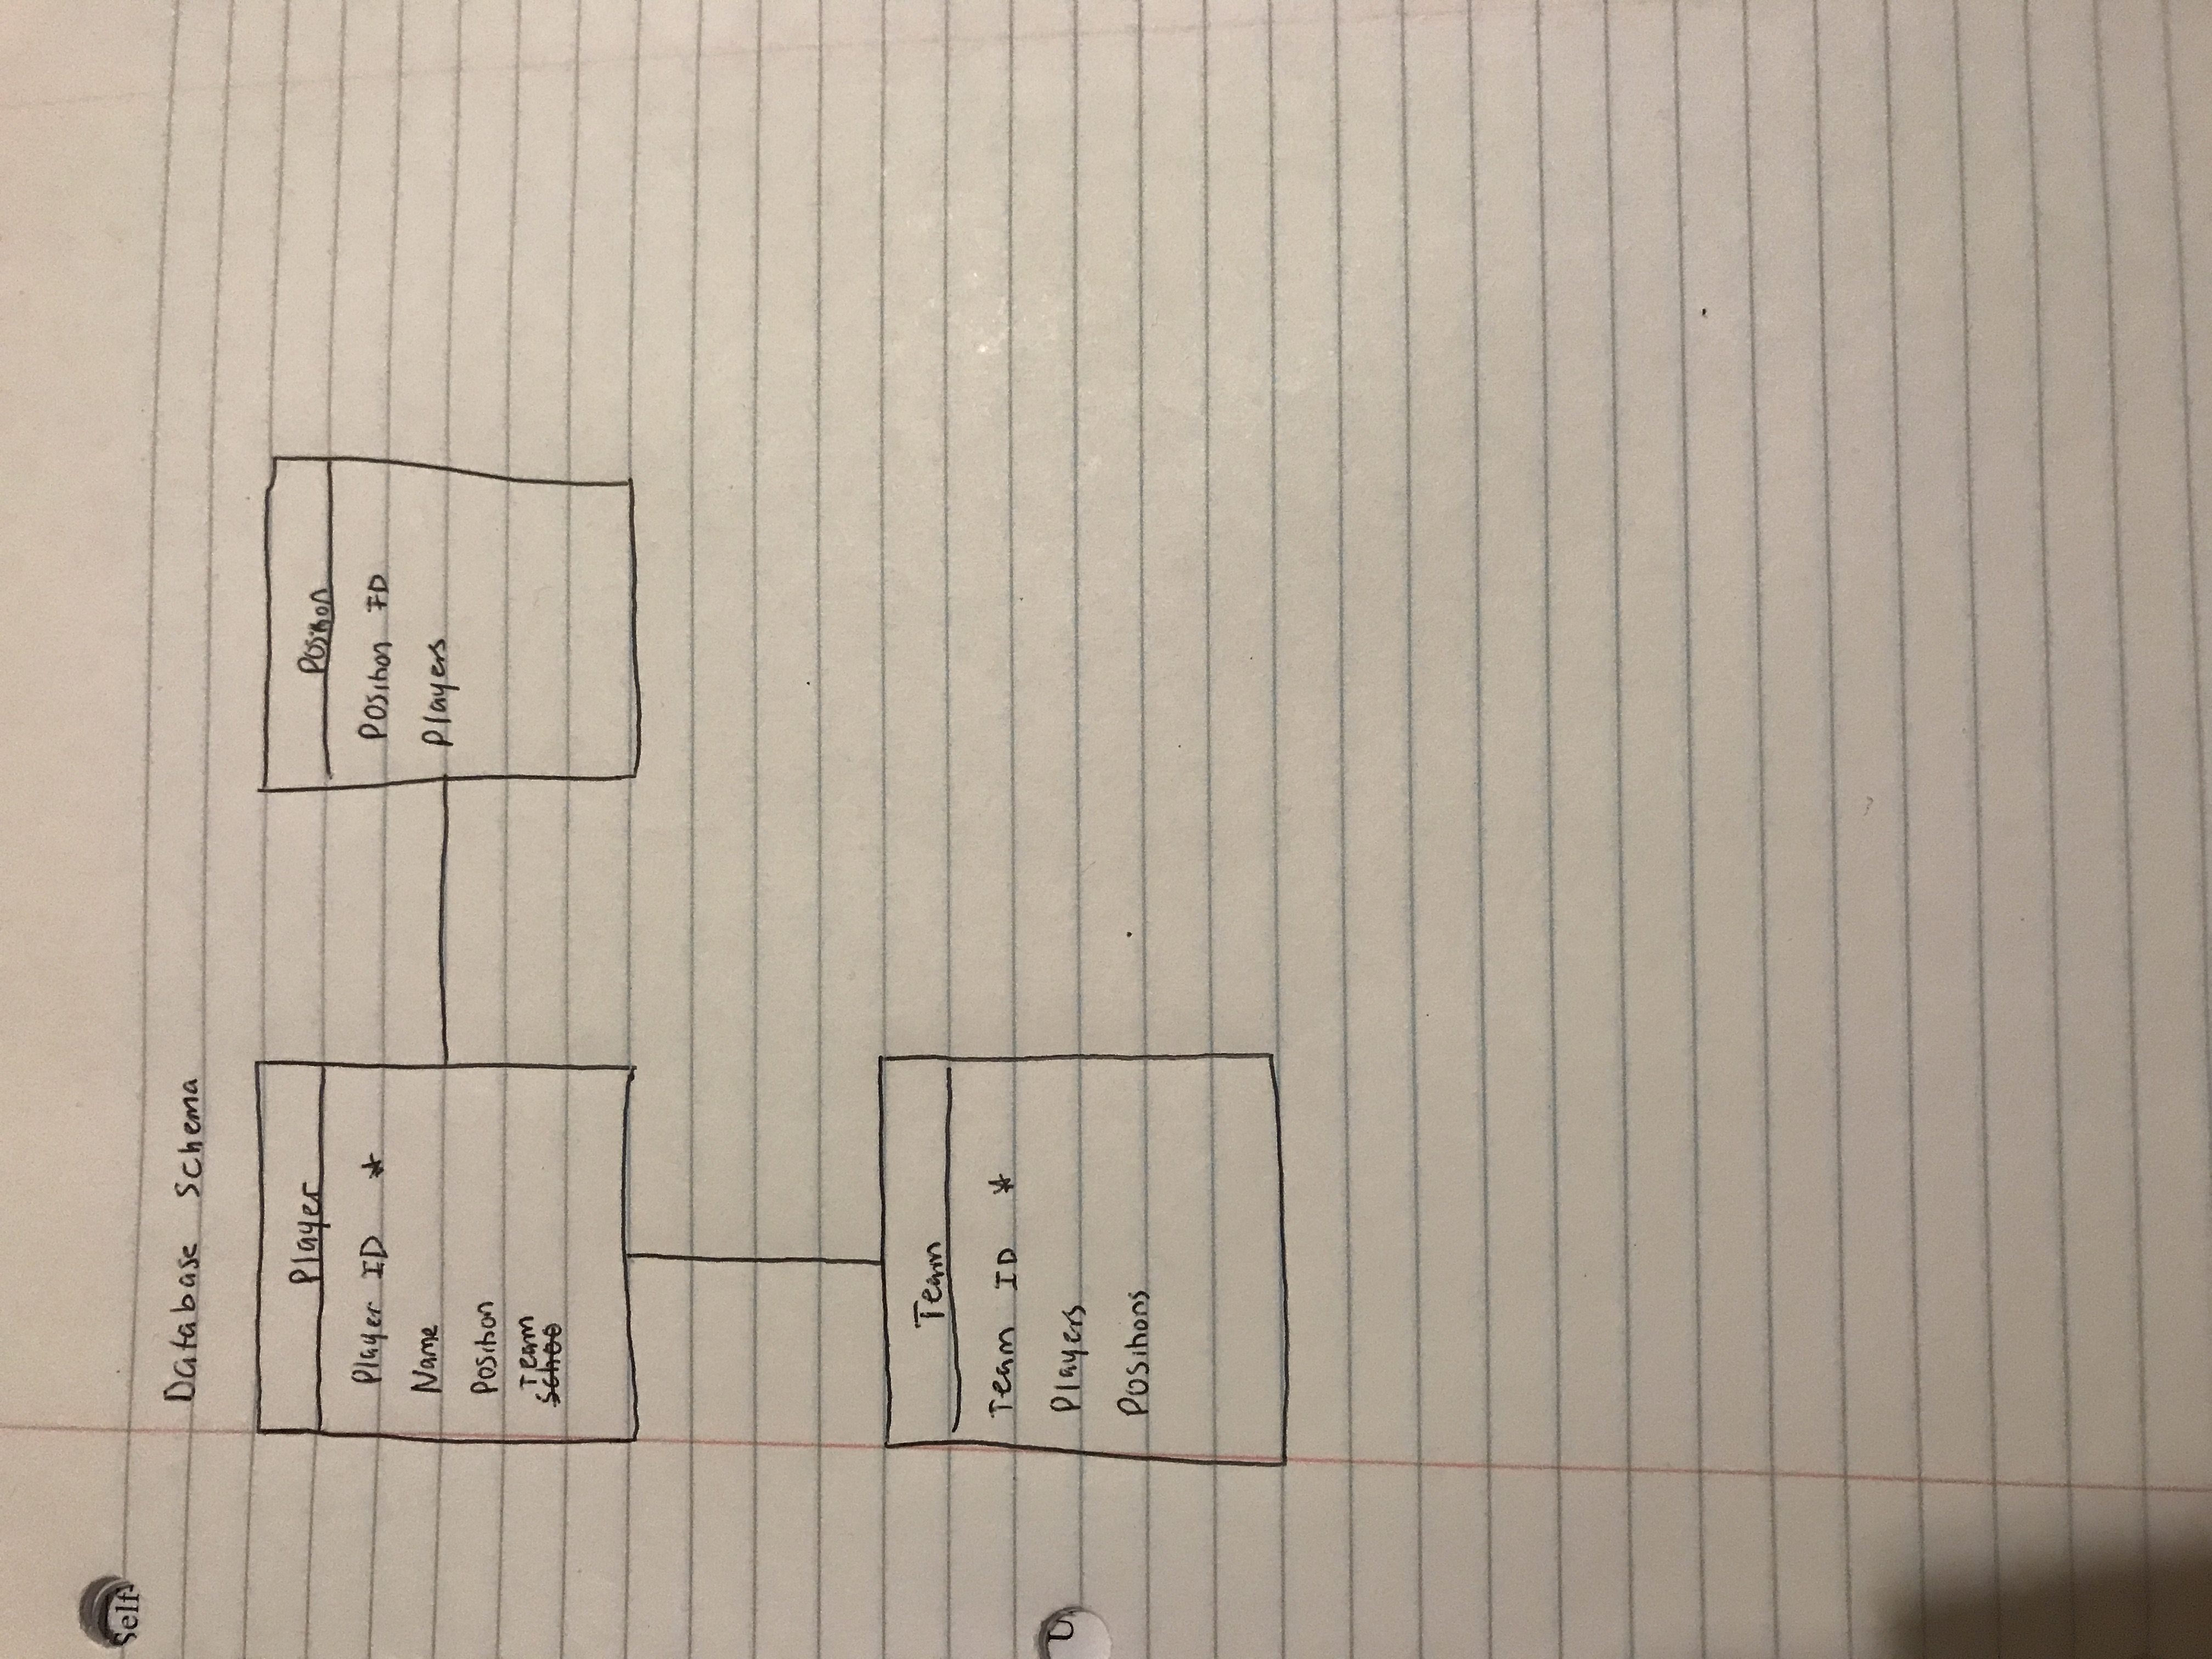 Self-
Database Schema
Player
Player ID *
Name
Position
Team
Schoo
Position
Position ID
Players
Team
Team ID *
Players
Positions